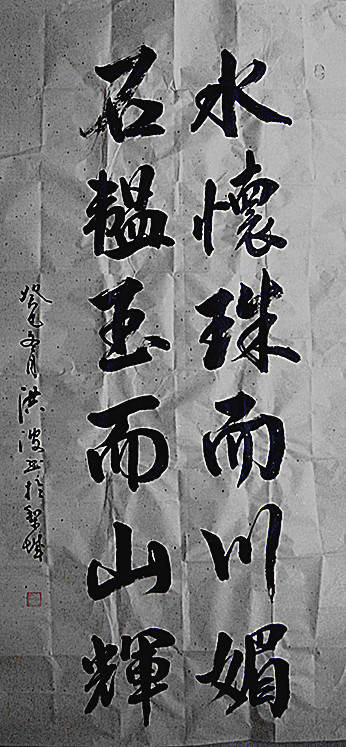 水懷珠而川媚
石韞玉而山輝
癸巳冬月洪波書於梨城